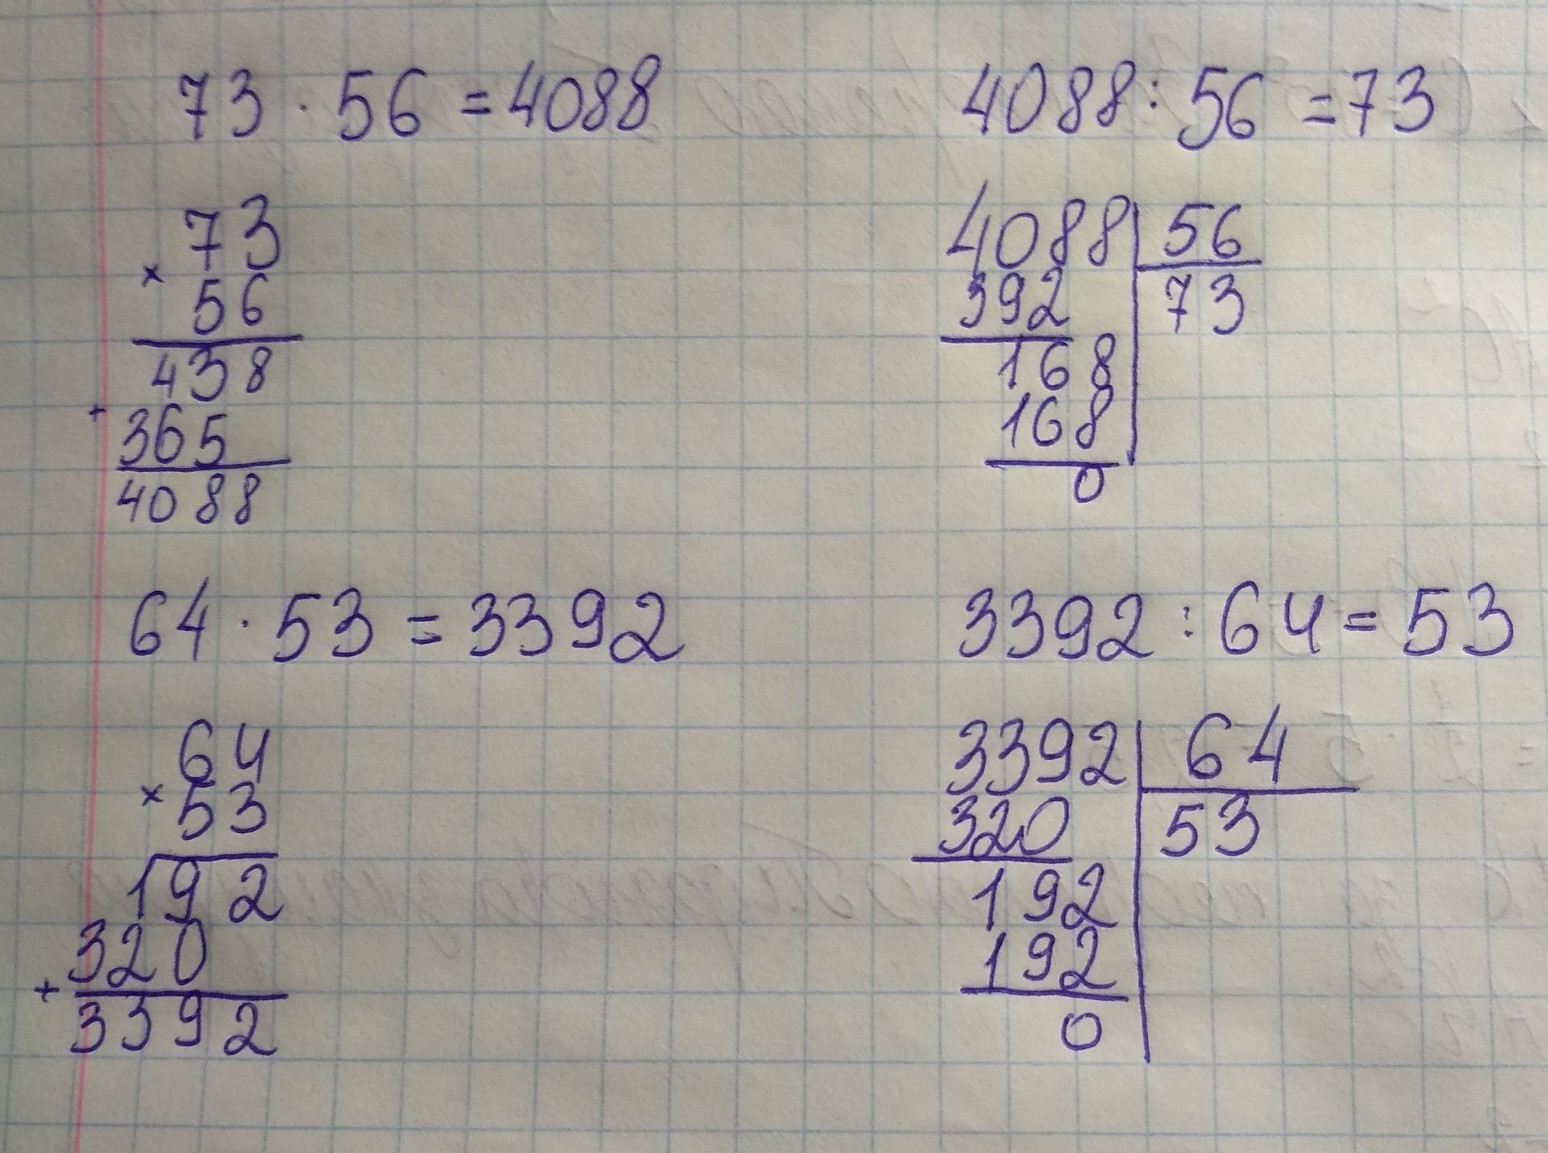 73 · 56 = 4088
73
× 56
438
+ 365
4088
4088 : 56 = 73
4088 | 56
392 | 73
168
168
0
64 · 53 = 3392
64
× 53
192
+ 320
3392
3392 : 64 = 53
3392 | 64
320 | 53
192
192
0